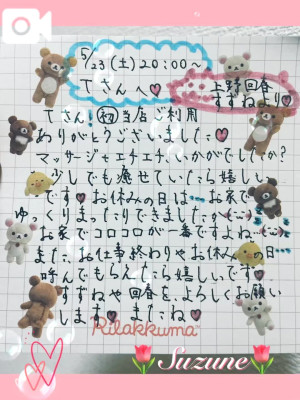 5/23(土)20:00〜
Tさんへ♡
上野回春
すずねより♡
Tさん!㊙当店ご利用
ありがとうございました♡
マッサージとエチエチ、いかがでしたか?
少しでも癒せていたら嬉しい
です♡お休みの日は…お家で
ゆっくりまったりできましたか
お家でコロコロが一番ですよね
また、お仕事終わりやお休みの日…
呼んでもらえたら嬉しいです♡
すずねや回春をよろしくお願い
します♡またね♡
Rilakkuma
Suzune